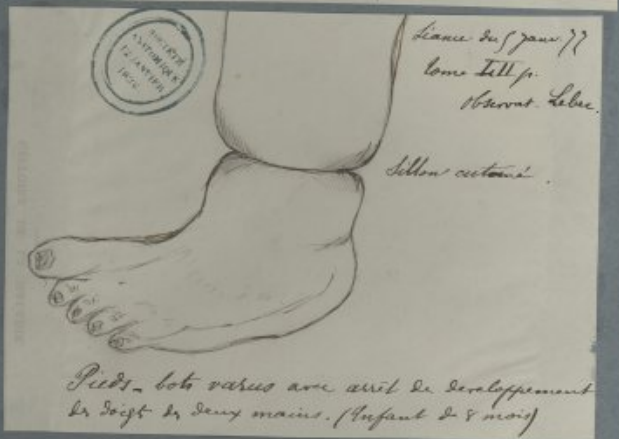 SOCIÉTÉ
ANATOMIQUE
12 JANVIER
Séance du 5 janv. 77
tome LII p.
Observat. Lebec.
Sillon cutané.
Pieds-bots varus avec arrêt de developpement
des doigts des deux mains. (Enfant de 8 mois)